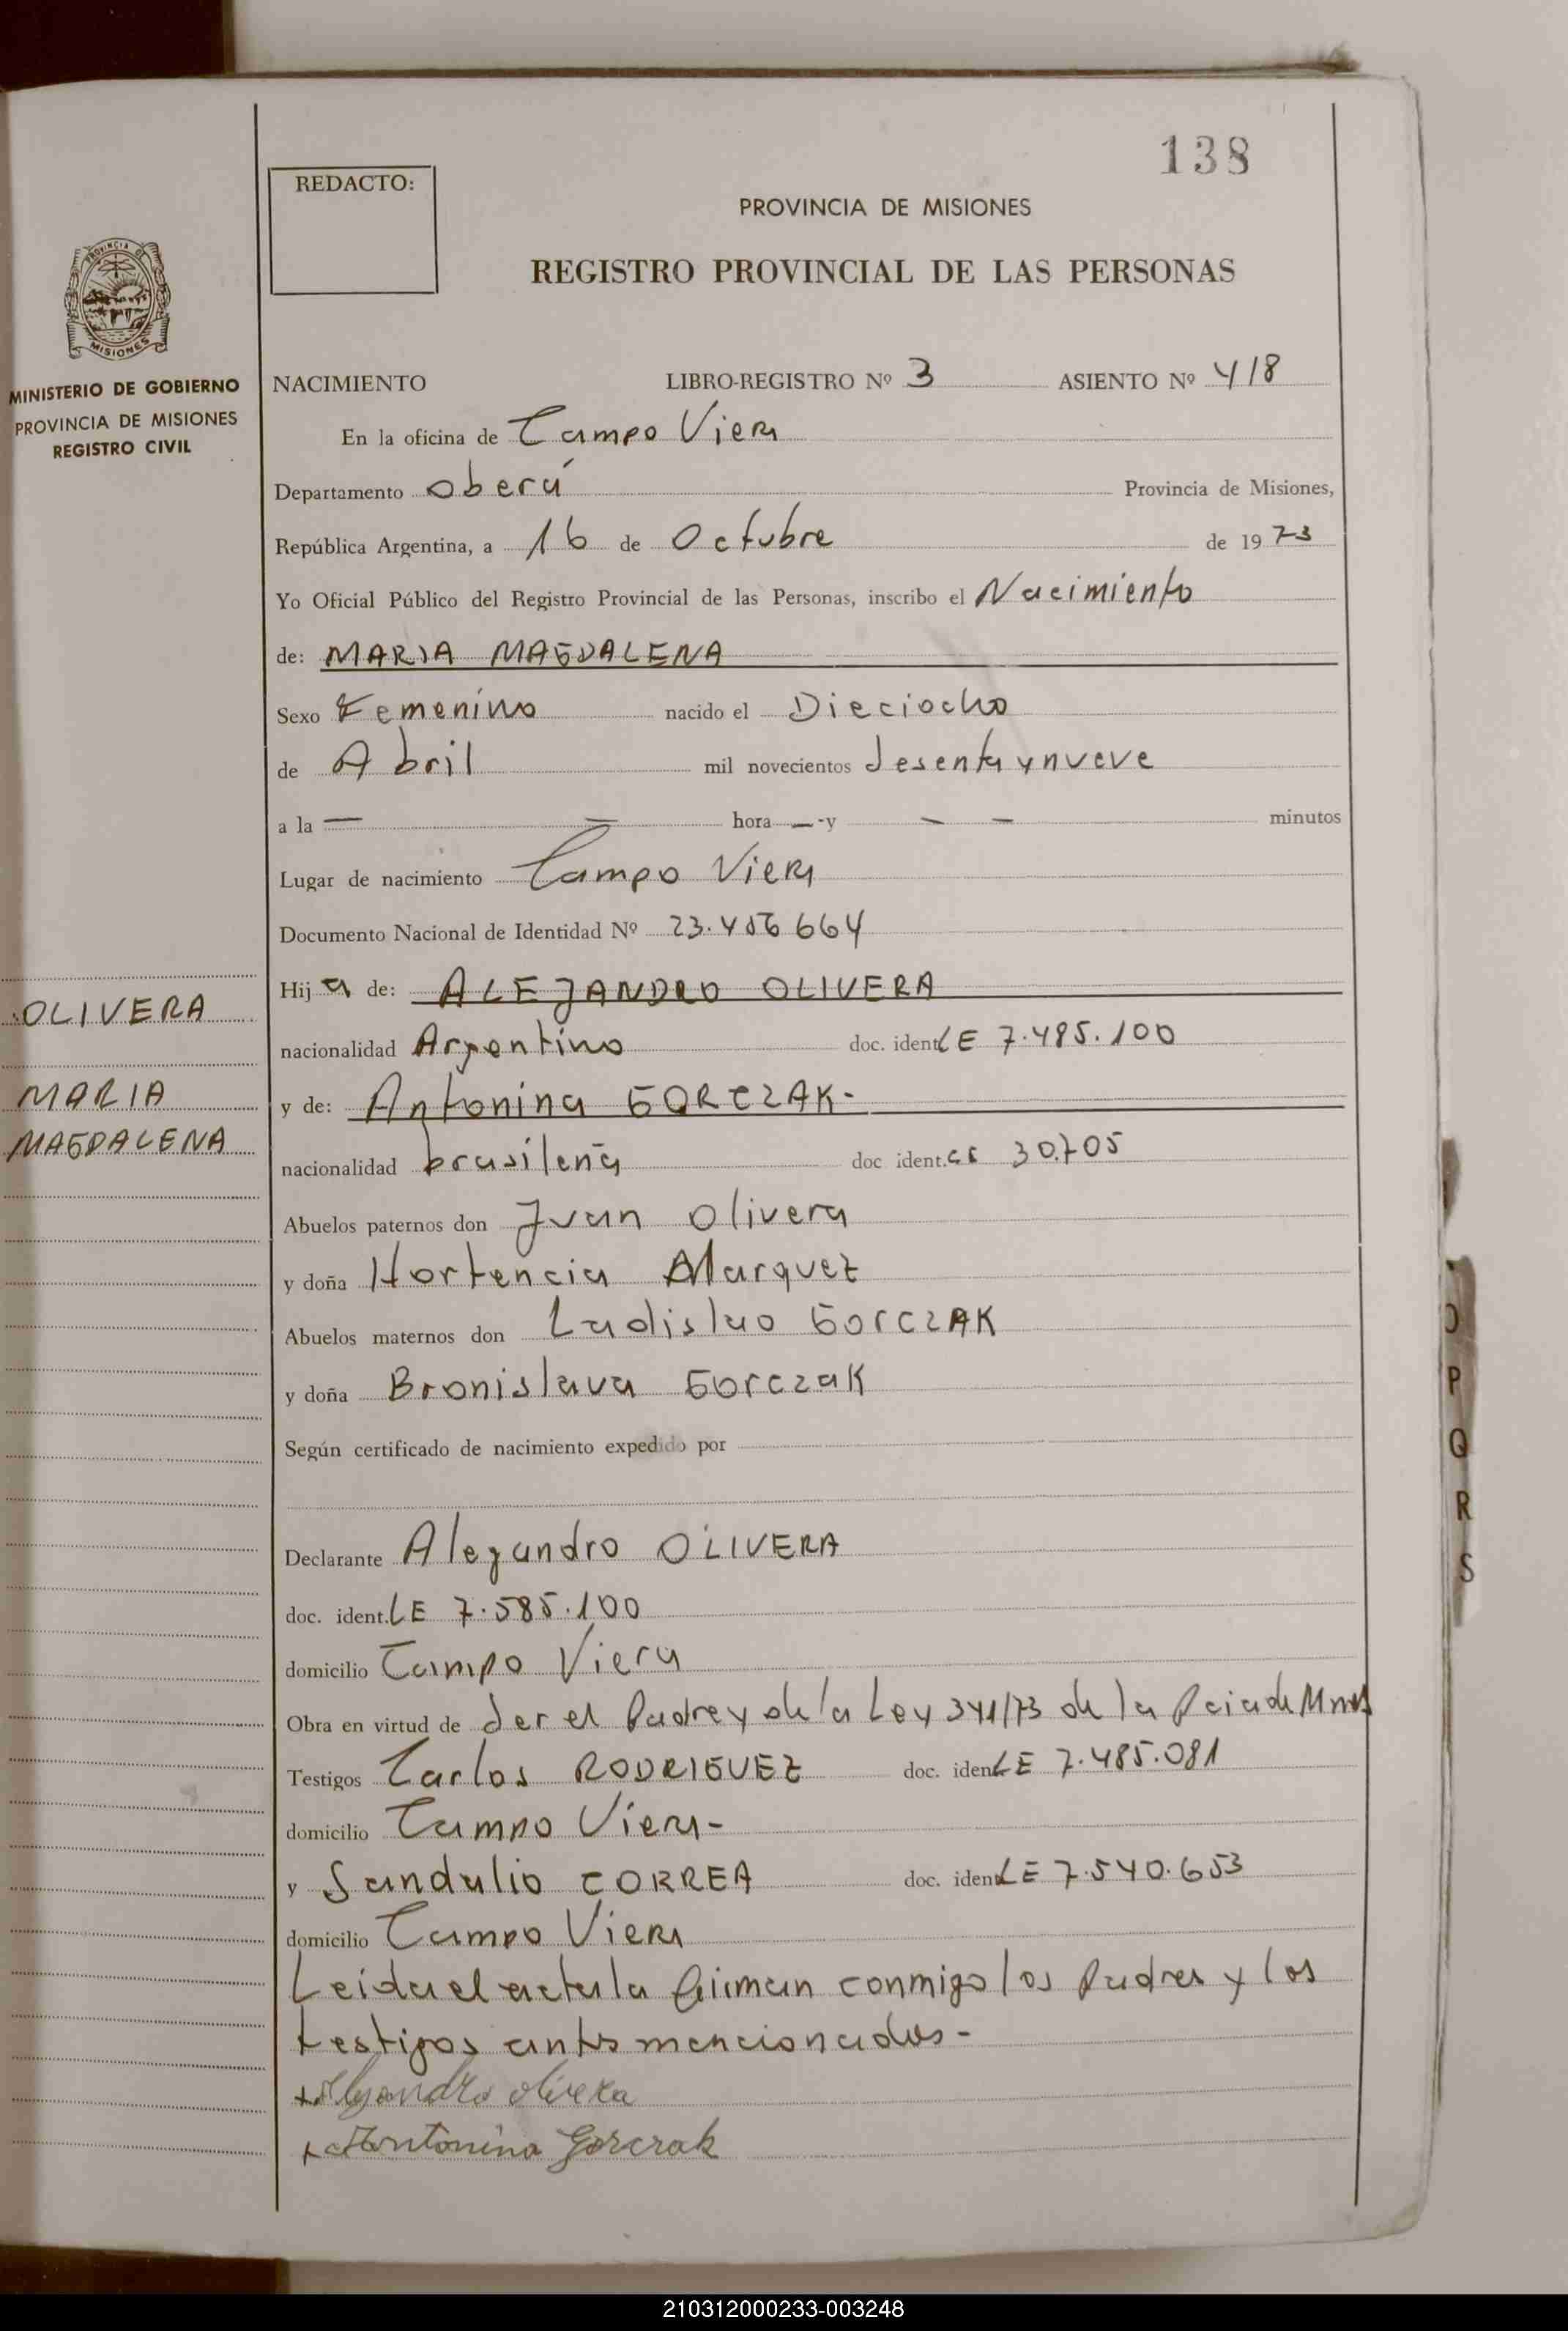 138
REDACTO:
PROVINCIA DE MISIONES
REGISTRO PROVINCIAL DE LAS PERSONAS
PROVINCIA DE
MISIONES
MINISTERIO DE GOBIERNO
PROVINCIA DE MISIONES
REGISTRO CIVIL
NACIMIENTO LIBRO-REGISTRO Nº 3 ASIENTO Nº 418
En la oficina de Campo Viera
Departamento Oberá Provincia de Misiones,
República Argentina, a 16 de Octubre de 1973
Yo Oficial Público del Registro Provincial de las Personas, inscribo el Nacimiento
de: MARIA MAGDALENA
Sexo Femenino nacido el Dieciocho
de Abril mil novecientos sesenta y nueve
a la — — hora — -y — — minutos
Lugar de nacimiento Campo Viera
Documento Nacional de Identidad Nº 23.456 664
Hija de: ALEJANDRO OLIVERA
nacionalidad Argentino doc. ident LE 7.485.100
y de: Antonina GORCZAK-
nacionalidad brasileña doc ident. 30.705
Abuelos paternos don Juan Olivera
y doña Hortencia Marquez
Abuelos maternos don Ladislao GorCZAK
y doña Bronislava GorczaK
Según certificado de nacimiento expedido por
Declarante Alejandro OLIVERA
doc. ident. LE 7.585.100
domicilio Campo Viera
Obra en virtud de ser el Padre y de la Ley 341/73 de la Pcia de Mnes
Testigos Carlos RODRIGUEZ doc. ident LE 7.485.081
domicilio Campo Viera-
y Sandalio CORREA doc. ident LE 7.540.653
domicilio Campo Viera
Leida el acta la firman conmigo los Padres y los
testigos antes mencionados-
+ Alejandro Olivera
+ Antonina Gorczak
OLIVERA
MARIA
MAGDALENA
O
P
Q
R
S
210312000233-003248